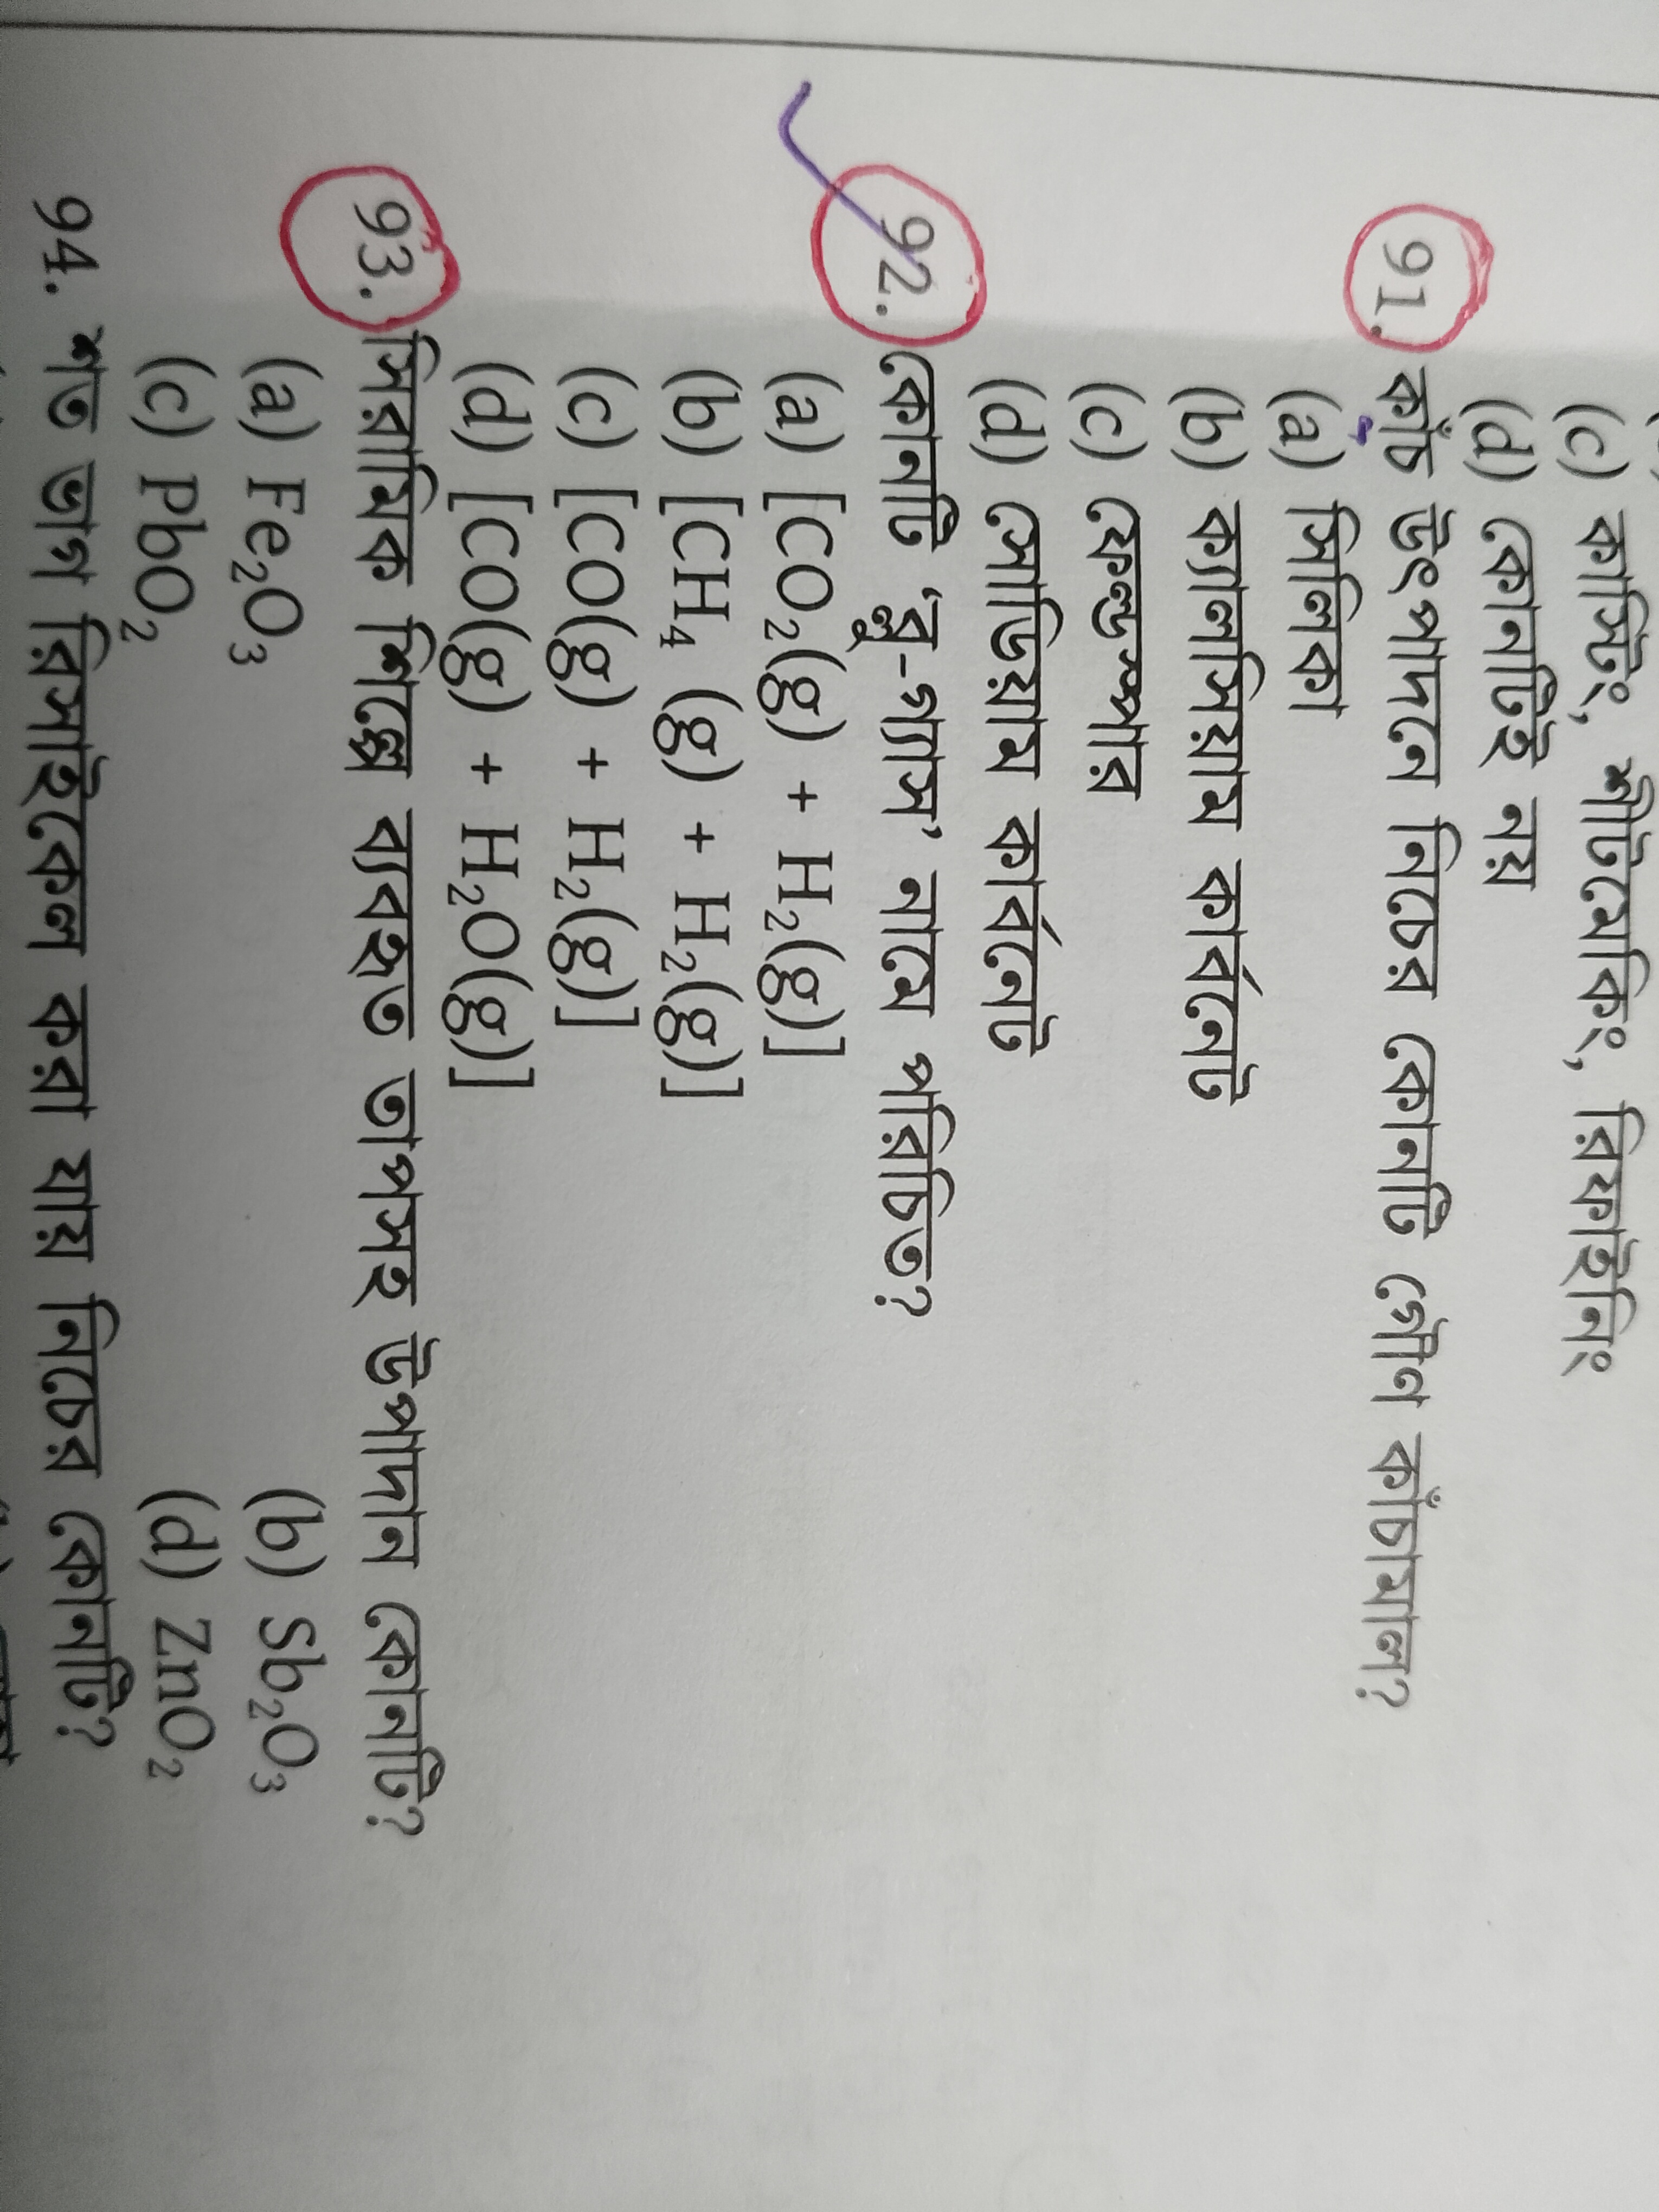 (c) কাস্টিং, শীটমেকিং, রিফাইনিং
(d) কোনটিই নয়
91. কাঁচ উৎপাদনে নিচের কোনটি গৌন কাঁচামাল?
(a) সিলিকা
(b) ক্যালসিয়াম কার্বনেট
(c) ফেল্ডস্পার
(d) সোডিয়াম কার্বনেট
92. কোনটি ‘ব্লু-গ্যাস’ নামে পরিচিত?
(a) [CO₂(g) + H₂(g)]
(b) [CH₄ (g) + H₂(g)]
(c) [CO(g) + H₂(g)]
(d) [CO(g) + H₂O(g)]
93. সিরামিক শিল্পে ব্যবহৃত তাপসহ উপাদান কোনটি?
(a) Fe₂O₃ (b) Sb₂O₃
(c) PbO₂ (d) ZnO₂
94. শত ভাগ রিসাইকেল করা যায় নিচের কোনটি?